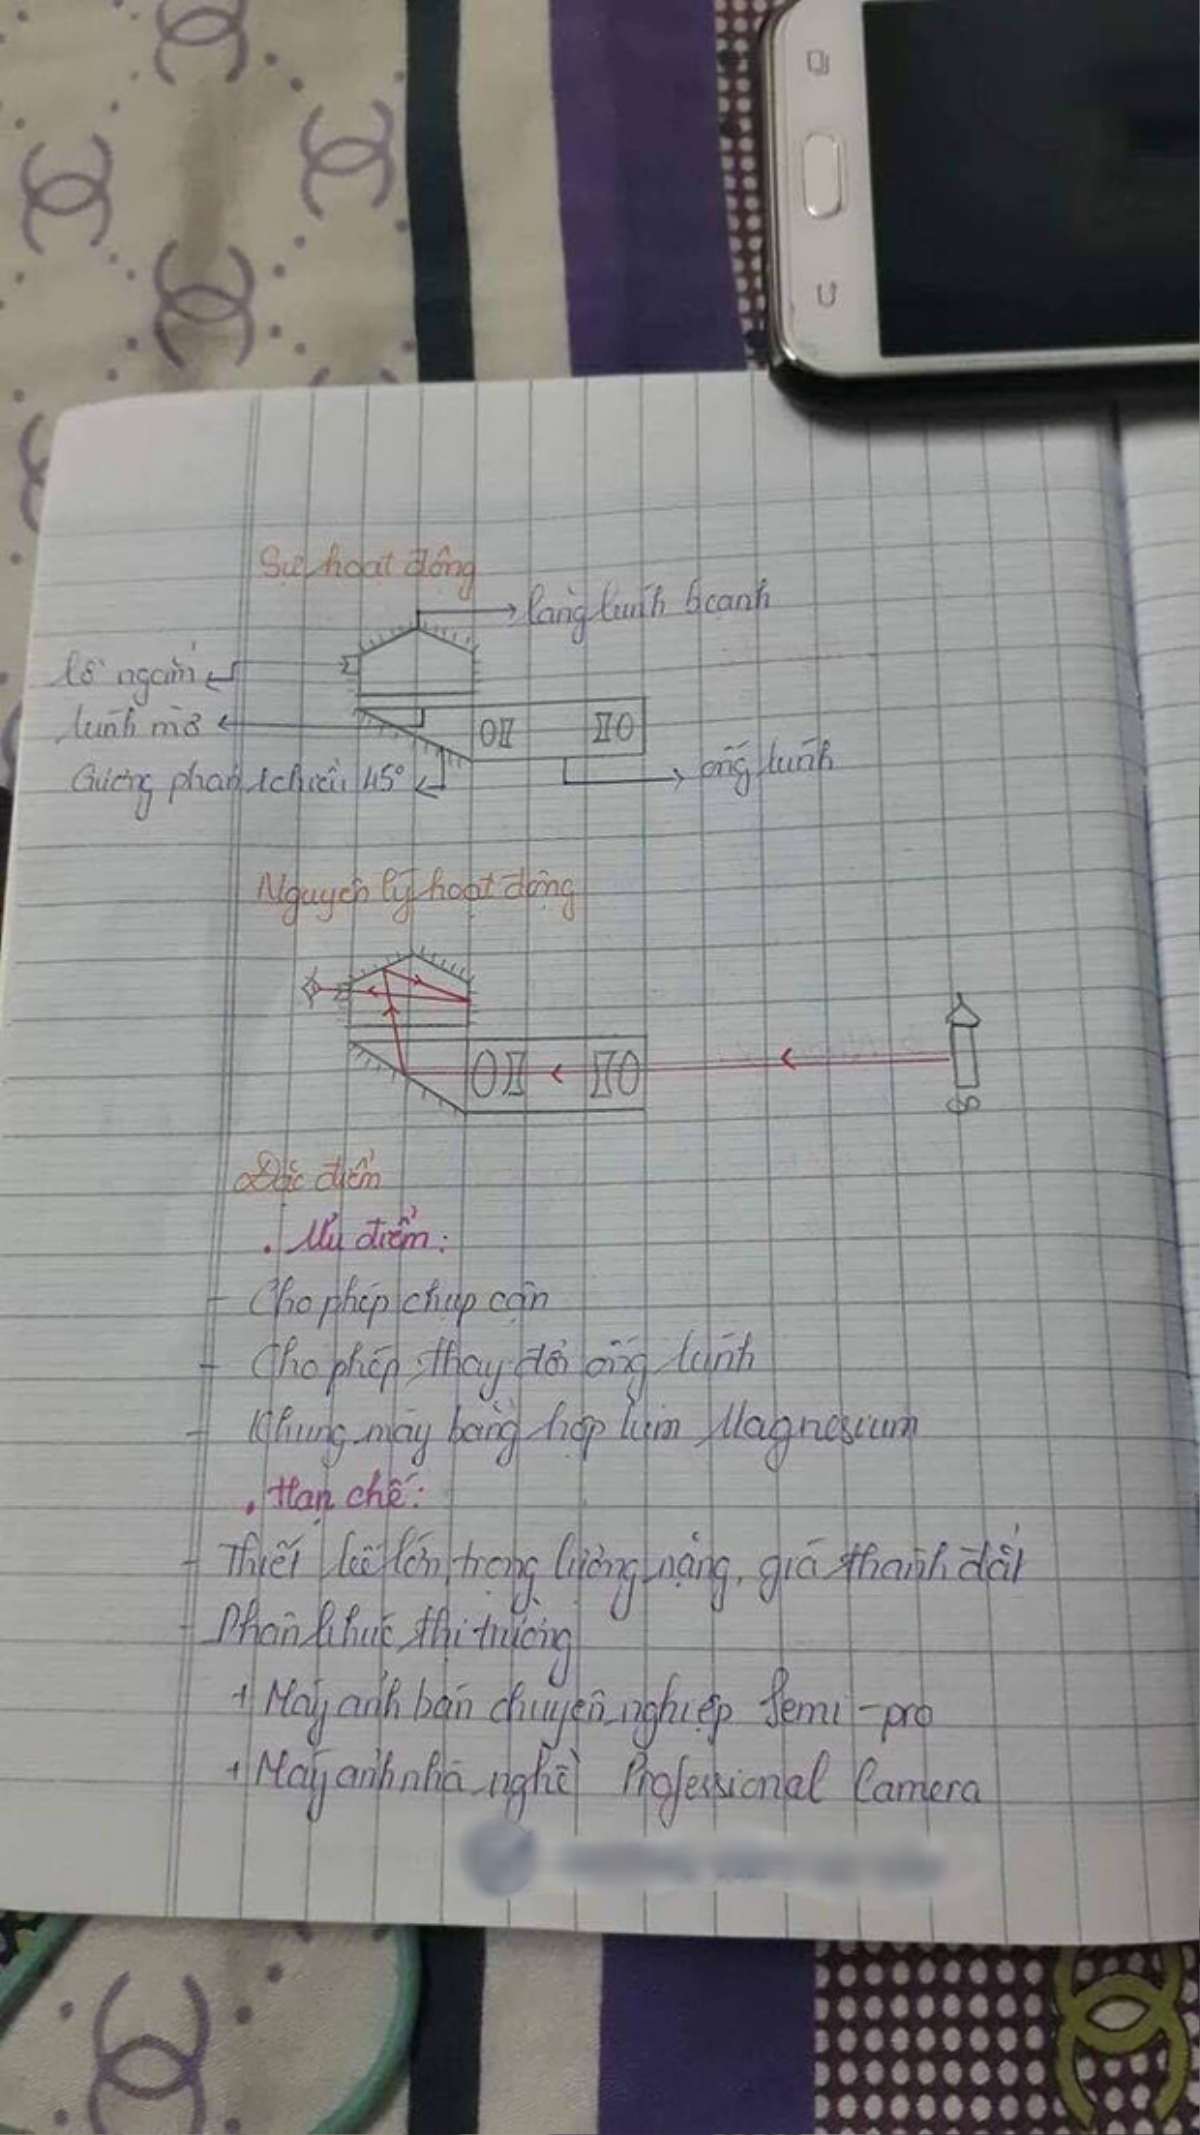 Sự hoạt động
lăng kính 5 cạnh
lỗ ngắm
kính mờ
Gương phản chiếu 45°
ống kính
Nguyên lý hoạt động
Đặc điểm
. Ưu điểm:
- Cho phép chụp cận
- Cho phép thay đổi ống kính
- Khung máy bằng hợp kim Magnesium
. Hạn chế:
- Thiết kế lớn, trọng lượng nặng, giá thành đắt
- Phân khúc thị trường
+ Máy ảnh bán chuyên nghiệp Semi-pro
+ Máy ảnh nhà nghề Professional Camera